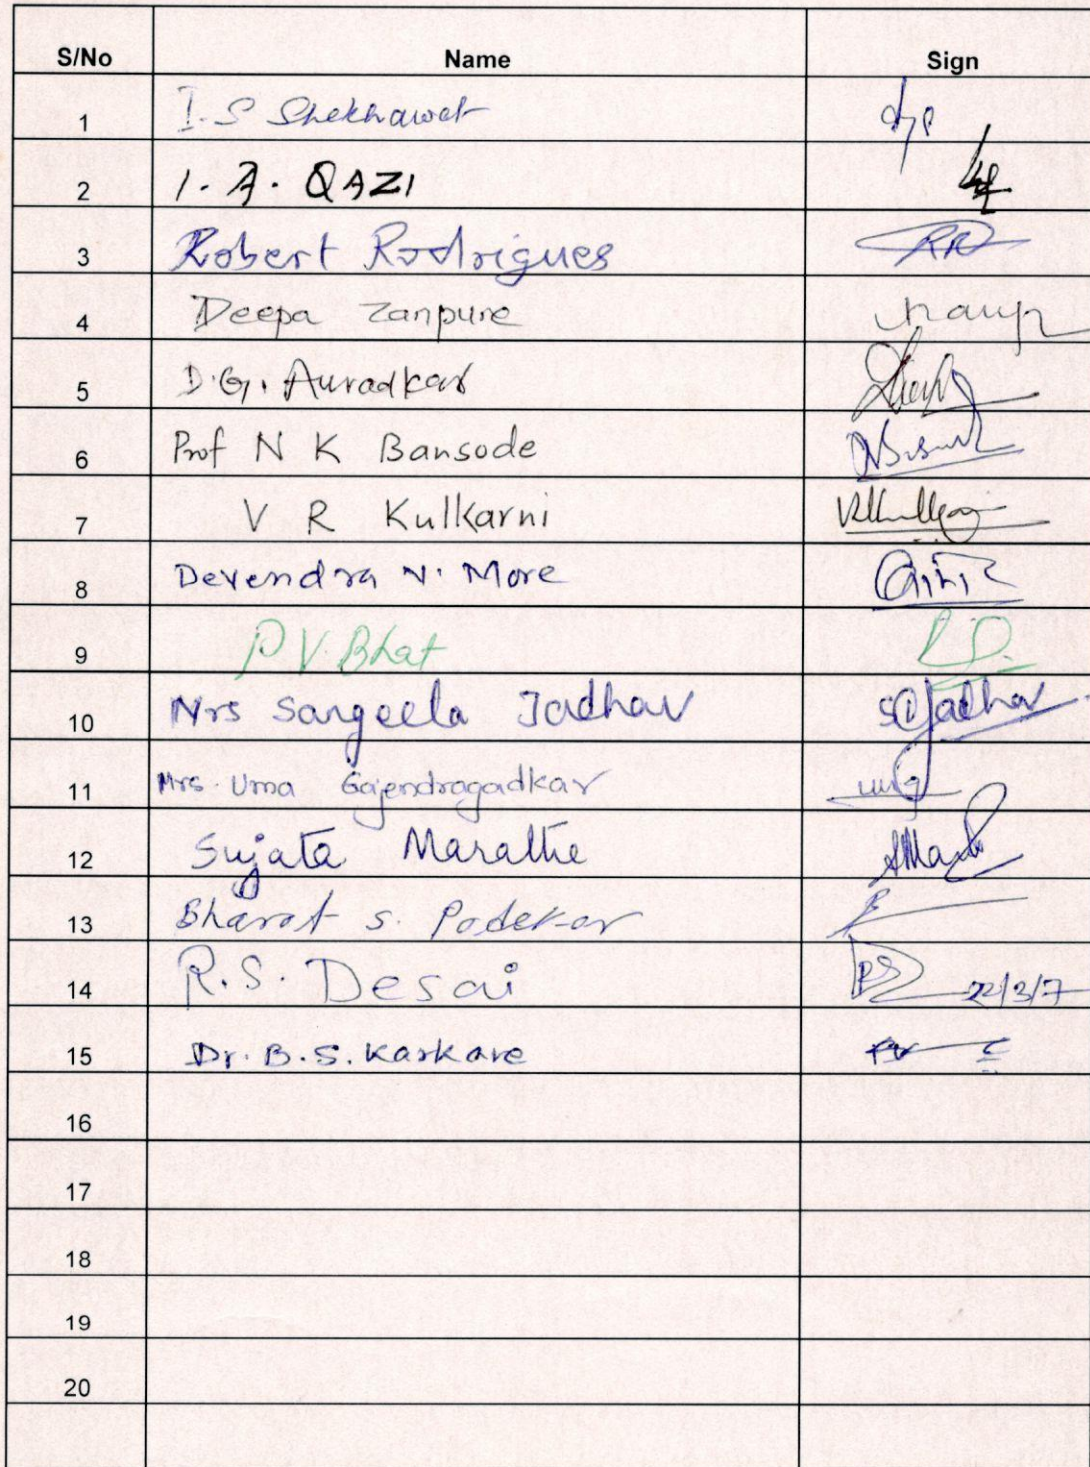 S/No Name Sign
1 I.S Shekhawat
2 I. A. QAZI
3 Robert Rodrigues RR
4 Deepa Zanpure
5 D.G. Auradkar
6 Prof N K Bansode
7 V R Kulkarni
8 Devendra N. More
9 P V. Bhat
10 Mrs Sangeela Jadhav SCJadhav
11 Mrs. Uma Gajendragadkar
12 Sujata Marathe
13 Bharat S. Padekar
14 R.S. Desai 22/3/7
15 Dr. B.S. Karkare
16
17
18
19
20